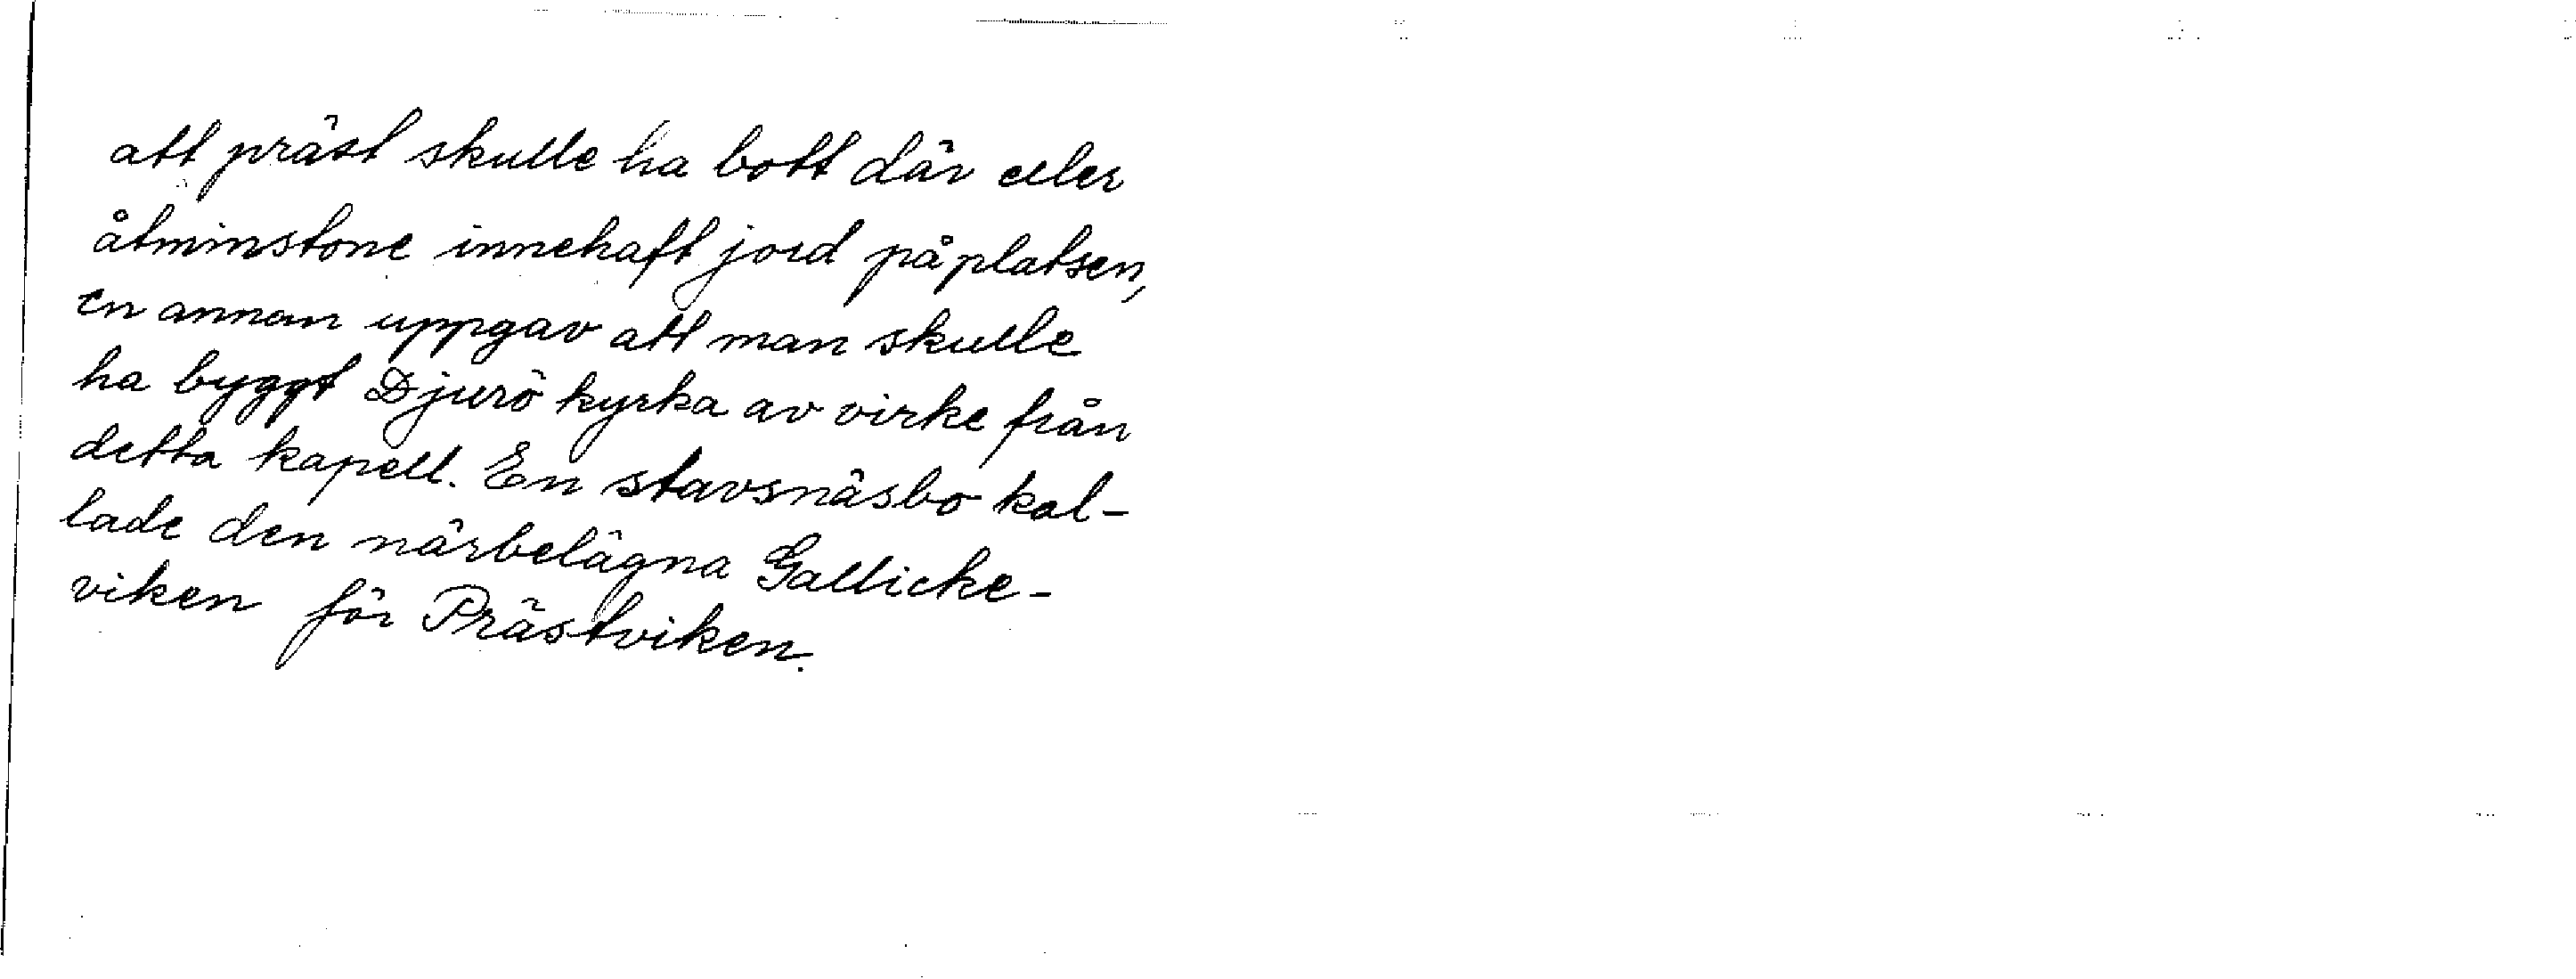 att präst skulle ha bott där eller
åtminstone innehaft jord på platsen,
en annan uppgav att man skulle
ha byggt Djurö kyrka av virke från
detta kapell. En stavsnäsbo kal-
lade den närbelägna Gallicke-
viken för Prästviken.